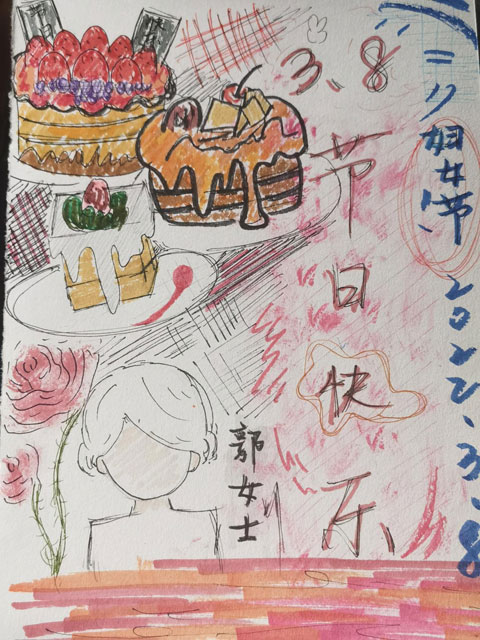 三八妇女节 2022、3、8
3、8
节日快乐
郭女士